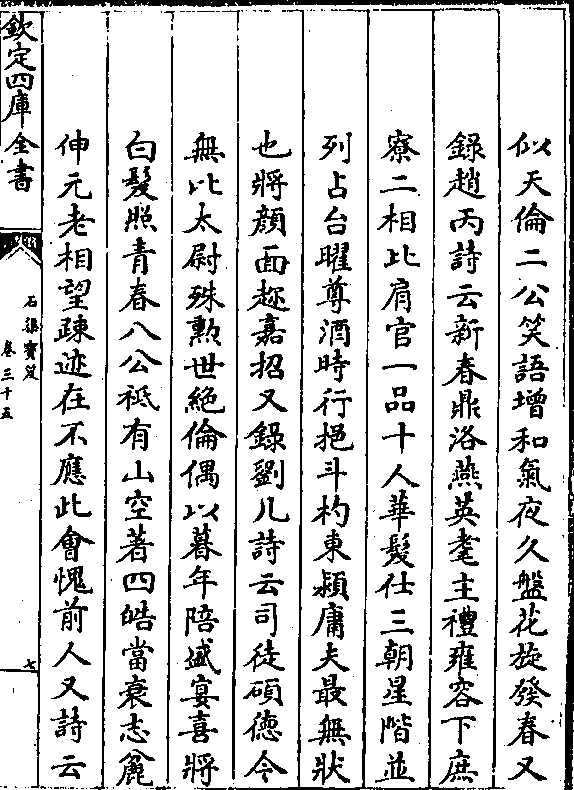 似天倫二公笑語增和氣夜久盤花旋發春又
錄趙丙詩云新春鼎洛燕英耄主禮雍容下庶
寮二相比肩官一品十人華髮仕三朝星階並
列占台曜尊酒時行挹斗杓東潁庸夫最無狀
也將顔面趂嘉招又錄劉几詩云司徒碩德今
無比太尉殊勲世絶倫偶以暮年陪盛宴喜將
白髮照青春八公袛有山空著四皓當衰志㒰
伸元老相望疎迹在不應此會愧前人又詩云
欽定四庫全書
石渠寳笈
卷三十五
七